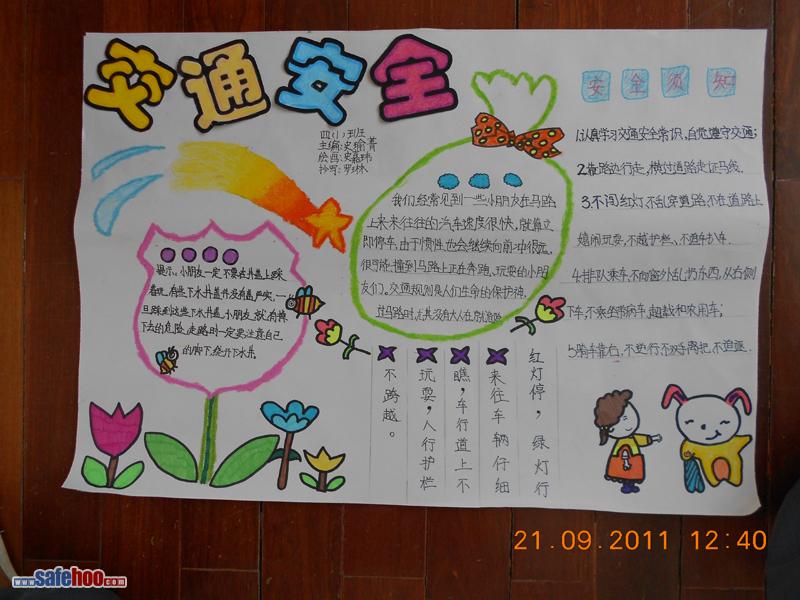 交通安全
四(1)班
主编:史榆菁
绘画:史嘉玮
抄写:罗琳
我们经常见到一些小朋友在马路
上来来往往的汽车速度很快,就算立
即停车,由于惯性也会继续向前冲很远,
很可能撞到马路上正在奔跑、玩耍的小朋
友们。交通规则是人们生命的保护神,
过马路时,尤其没有大人在旁
提示:小朋友一定不要去井盖上踩
着玩,有些下水井盖并没有盖严实,一
旦踩到这些下水井盖,小朋友就有掉
下去的危险,走路时一定要注意自己
的脚下,绕开下水井
安全须知
1.认真学习交通安全常识,自觉遵守交通;
2.靠路边行走,横过道路走
3.不闯红灯,不乱穿道路,不在道路上
嬉闹玩耍,不越护栏、不追车、扒车.
4.排队乘车,不向窗外乱扔东西,从右侧
下车,不乘坐带病车,超载和农用车;
5.骑车靠右,不逆行不双手离把,不追逐.
红灯停,绿灯行
来往车辆仔细
瞧,车行道上不
玩耍,人行护栏
不跨越。
21.09.2011 12:40
www.safehoo.com